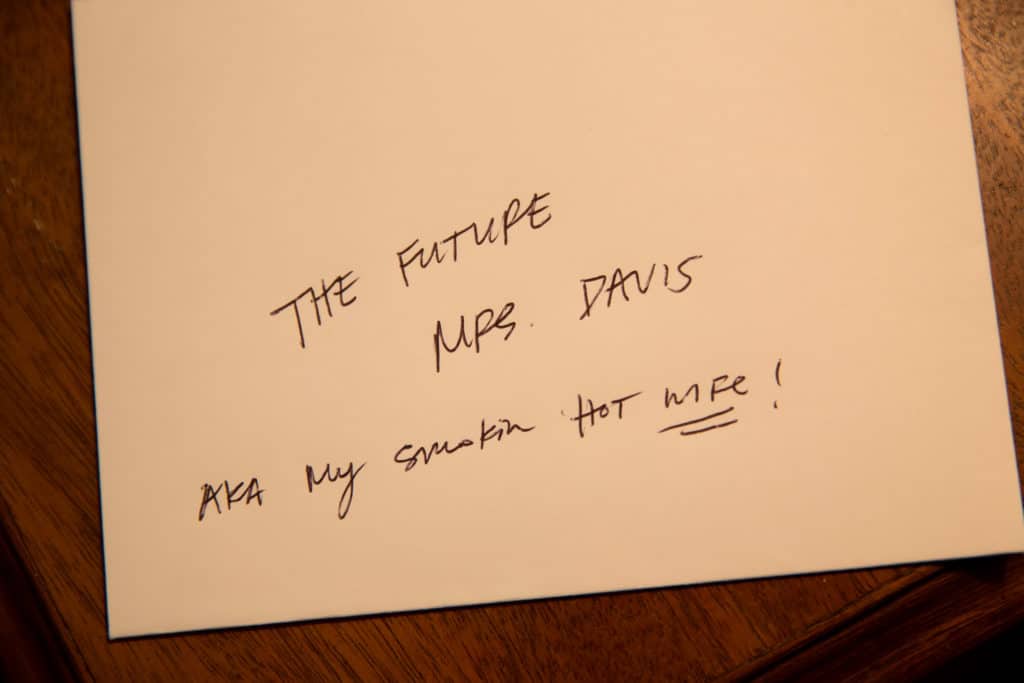 THE FUTURE
MRS. DAVIS
AKA My smokin HOT WIFE!